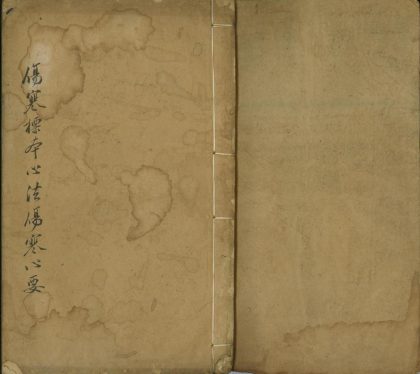 傷寒標本心法傷寒心要